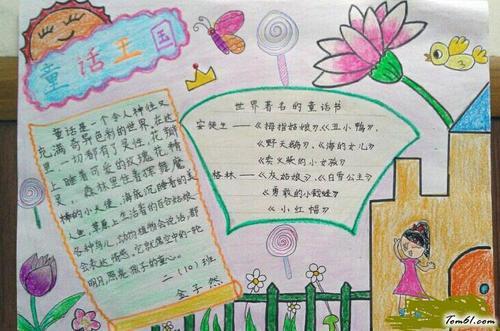 童话王国
童话是一个令人神往又
充满奇异色彩的世界,在这
里一切都有了灵性,花瓣
上睡着可爱的玫瑰花精
灵,森林里住着
棒的小天使,海底沉睡着的美
人鱼,草原上生活着的百合姑娘
各种鸟儿,动物植物会说话,都
会表达情感。它就像空中的一轮
明月,照亮孩子的童心。
二(10)班
金子然
世界著名的童话书
安徒生——《拇指姑娘》《丑小鸭》,
《野天鹅》,《海的女儿》
《卖火柴的小女孩》
格林——《灰姑娘》,《白雪公主》
《勇敢的小裁缝》
《小红帽》
Tom61.com